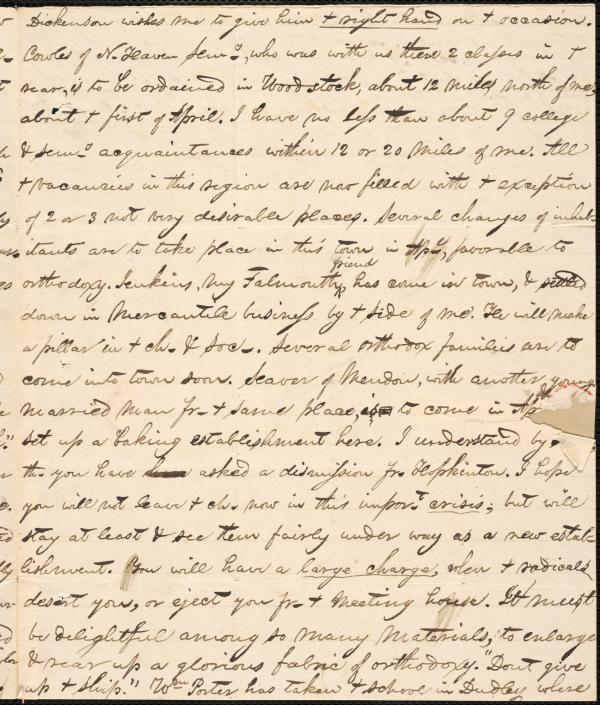 Dickenson wishes me to give him + right hand on + occasion.
Cowles of N. Haven Semy, who was with us there 2 classes in +
rear, is to be ordained in Woodstock, about 12 miles north of me,
about + first of April. I have no less than about 9 college
& Semy acquaintances within 12 or 20 miles of me. All
+ vacancies in this region are now filled with + exception
of 2 or 3 not very desirable places. Several changes of inhab-
itants are to take place in this town in Apl, favorable to
orthodoxy. Jenkins, my Falmouth friend, has come in town, & settled
down in Mercantile business by + side of me. He will make
a pillar in + ch. & Soc-. Several orthodox families are to
come into town soon. Seaver of Mendon, with another young
married man fr- + same place, to come in Apl
set up a baking establishment here. I understand by
th. you have asked a dismission fr. Hopkinton. I hope
you will not leave + ch. now in this import crisis; but will
stay at least & see them fairly under way as a new estab-
lishment. You will have a large charge, when + radicals
desert you, or eject you fr- + Meeting house. It must
be delightful among so many materials, to enlarge
& rear up a glorious fabric of orthodoxy. "Dont give
up + ship." Wm Porter has taken + school in Dudley where